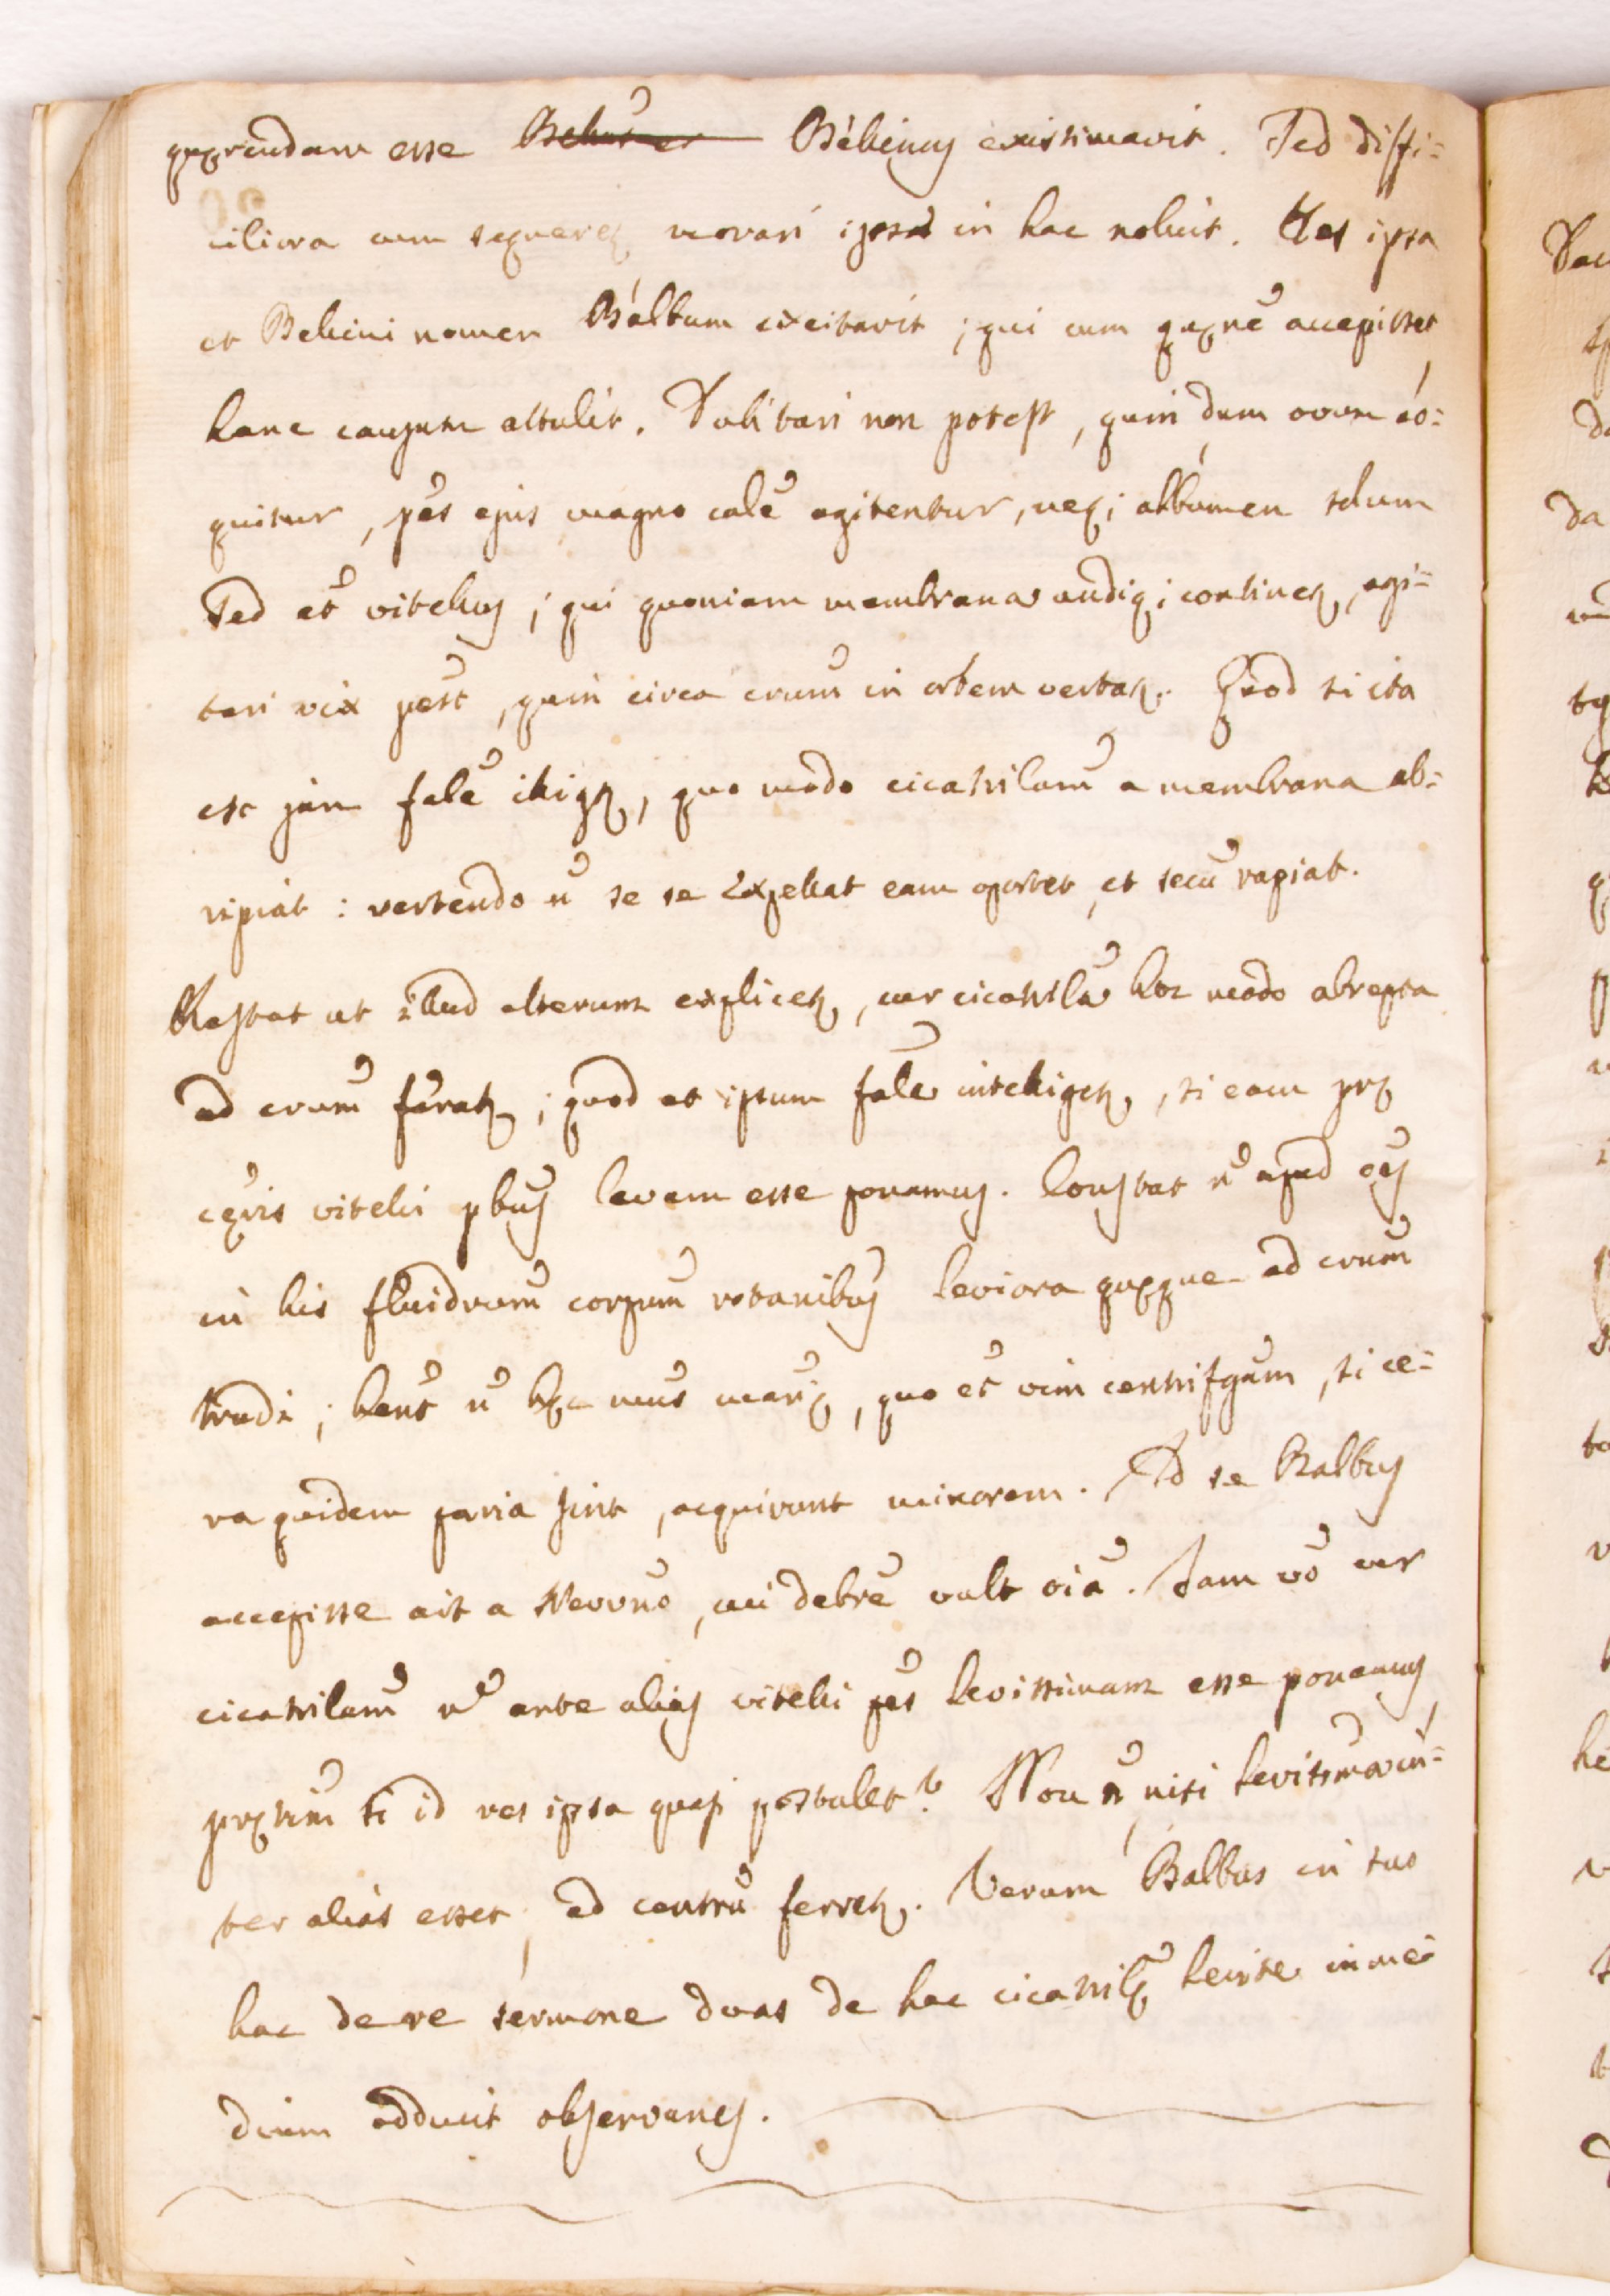 quærendam esse Belius er Béliĕnus existimavit. Sed diffi=
ciliora cum sequeretꝫ morari ipsa in hac noluit. Res ipsa
et Belieni nomen Bálbum excitavit; qui cum quæne᷒ accepisset
hanc causam attulit. Dubitari non potest, quin dum ovum có=
quitur, pe᷒s ejus magno calē agitentur, neqꝫ albúmen solum
Sed et᷒ vitellus; qui quoniam membrana undiqꝫ continetꝫ, agi=
tari vix pest᷒, quin circa crum᷒ in orbem vertatꝫ. Quod si ita
est jam fale᷒ itligetꝫ, quo modo cicatrilam᷒ a membrana ab=
ripiat: vertendo n᷒ se se expellat eam oportet, et secū rapiat.
Restat ut illud alterum explicetꝫ, cur cicatrila᷒ hoc modo abrepta
ad crum᷒ feratꝫ; quod et ipsum fale᷒ intelligetꝫ, si eam præ
cæ᷒ris vitelli pbus levem esse ponamus. Constat n᷒ apud oe᷒s
in his fluidrum᷒ corpum᷒ rotanibus leviora quæque ad crum᷒
trudi; hent᷒ n᷒ hæc mus mariæ, quo et᷒ vim centrifgam᷒, si ce=
ra quidem paria sint, acquirunt minorem. Id se Balbus
accepisse ait a Nevvno᷒, cui debre᷒ vult oia᷒. Jam vo᷒ cur
cicatrilam᷒ n᷒ ante alias vitelli pe᷒s levissimam esse ponamus,
præsim᷒ si id res ipsa quasi postulet? Non n᷒, nisi levissma᷒ in=
ter alias esset, ad centrū ferretꝫ. Verum Balbus in suo
hac de re sermone duas de hac cicatrilæ᷒ levite᷒ in me=
dium adducit observanes.